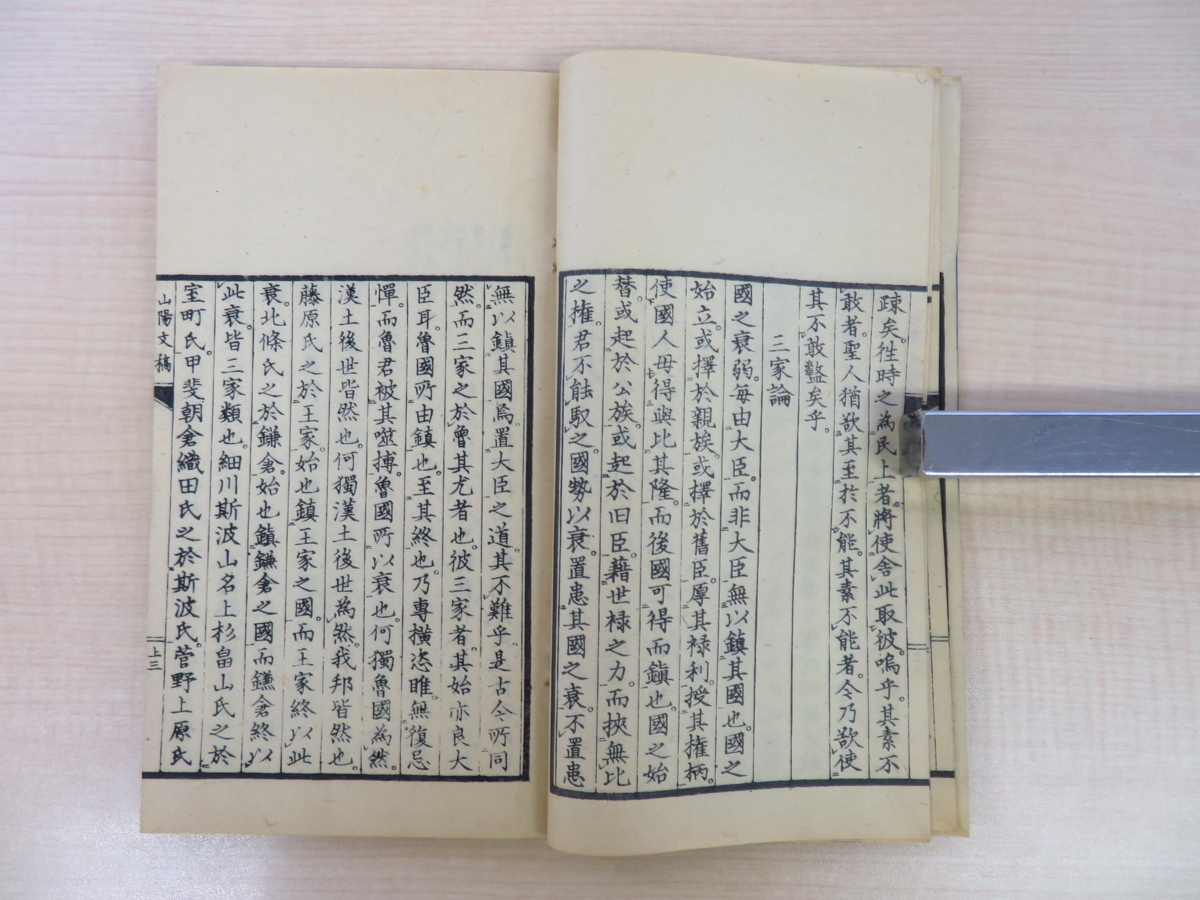 疎矣。徃時之為民上者。將使舍此取彼。嗚乎。其素不
敢者。聖人猶欲其至於不能。其素不能者。今乃欲使
其不敢盩矣乎。
三家論
國之衰弱。毎由大臣。而非大臣無以鎮其國也。國之
始立。或擇於親族。或擇於舊臣。厚其祿利。授其権柄。
使國人毋得與比其隆。而後國可得而鎮也。國之始
替。或起於公族。或起於旧臣。藉世禄之力。而挾無比
之権。君不能馭之。國勢以衰。置患其國之衰。不置患
無以鎮其國。烏置大臣之道。其不難乎。是古今所同
然。而三家之於魯其尤者也。彼三家者。其始亦良大
臣耳。魯國所由鎮也。至其終也。乃專横恣睢。無復忌
憚。而魯君被其噬搏。魯國所以衰也。何獨魯國為然。
漢土後世皆然也。何獨漢土後世為然。我邦皆然也。
藤原氏之於王家。始也鎮王家之國。而王家終以此
衰。北條氏之於鎌倉。始也鎮鎌倉之國而鎌倉終以
此衰。皆三家類也。細川斯波山名上杉畠山氏之於
室町氏。甲斐朝倉織田氏之於斯波氏。菅野上原氏
山陽文稿
上三